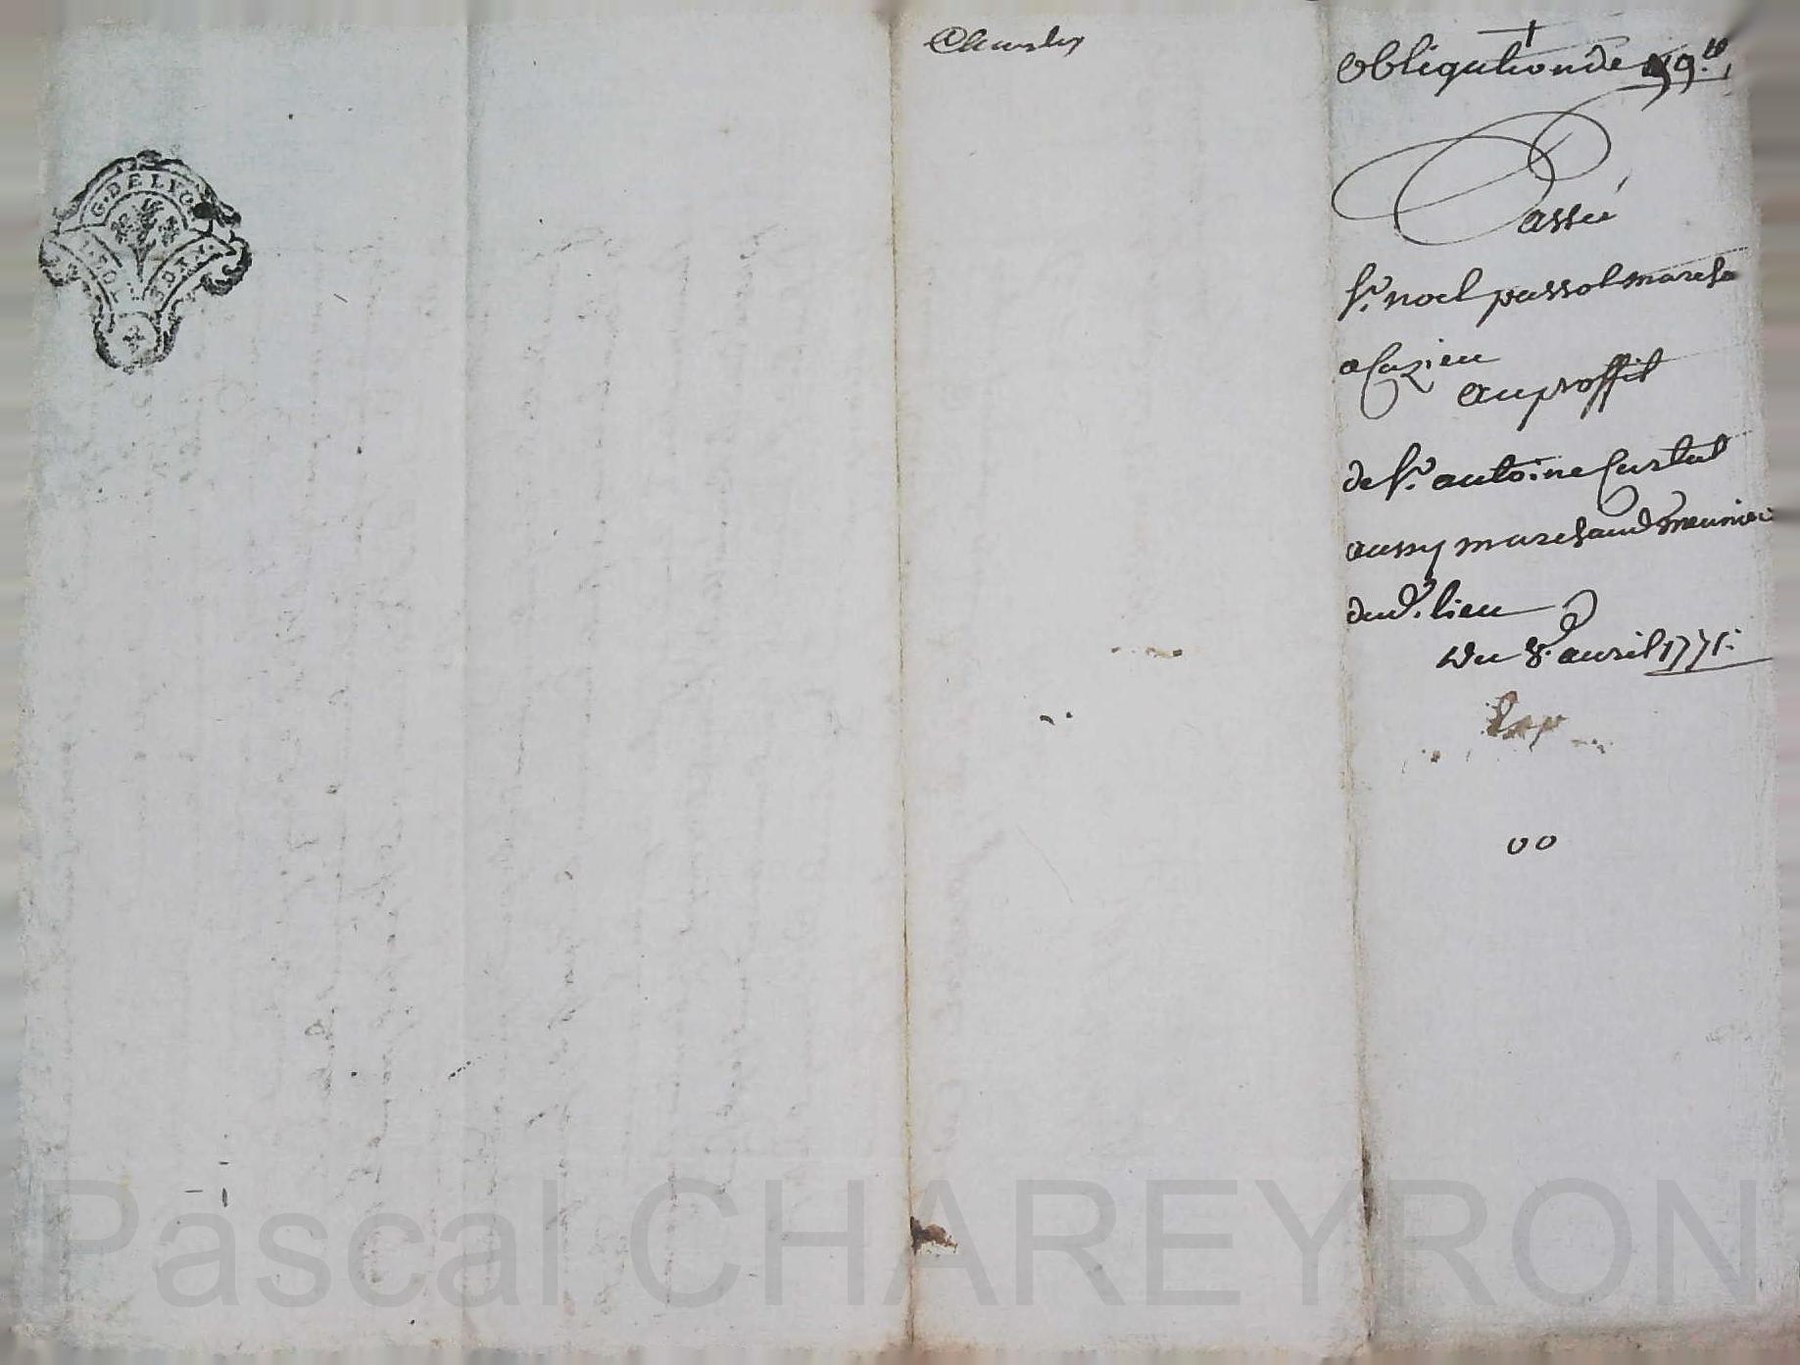 G. DE LYO
obligation de 99.tt
Passée
sr. noel passot marcha
a Cuzieu
au proffit
de sr. antoine Curtat
aussy marchand meunier
dud. lieu
Du 8. avril 1771.
00
Pascal CHAREYRON